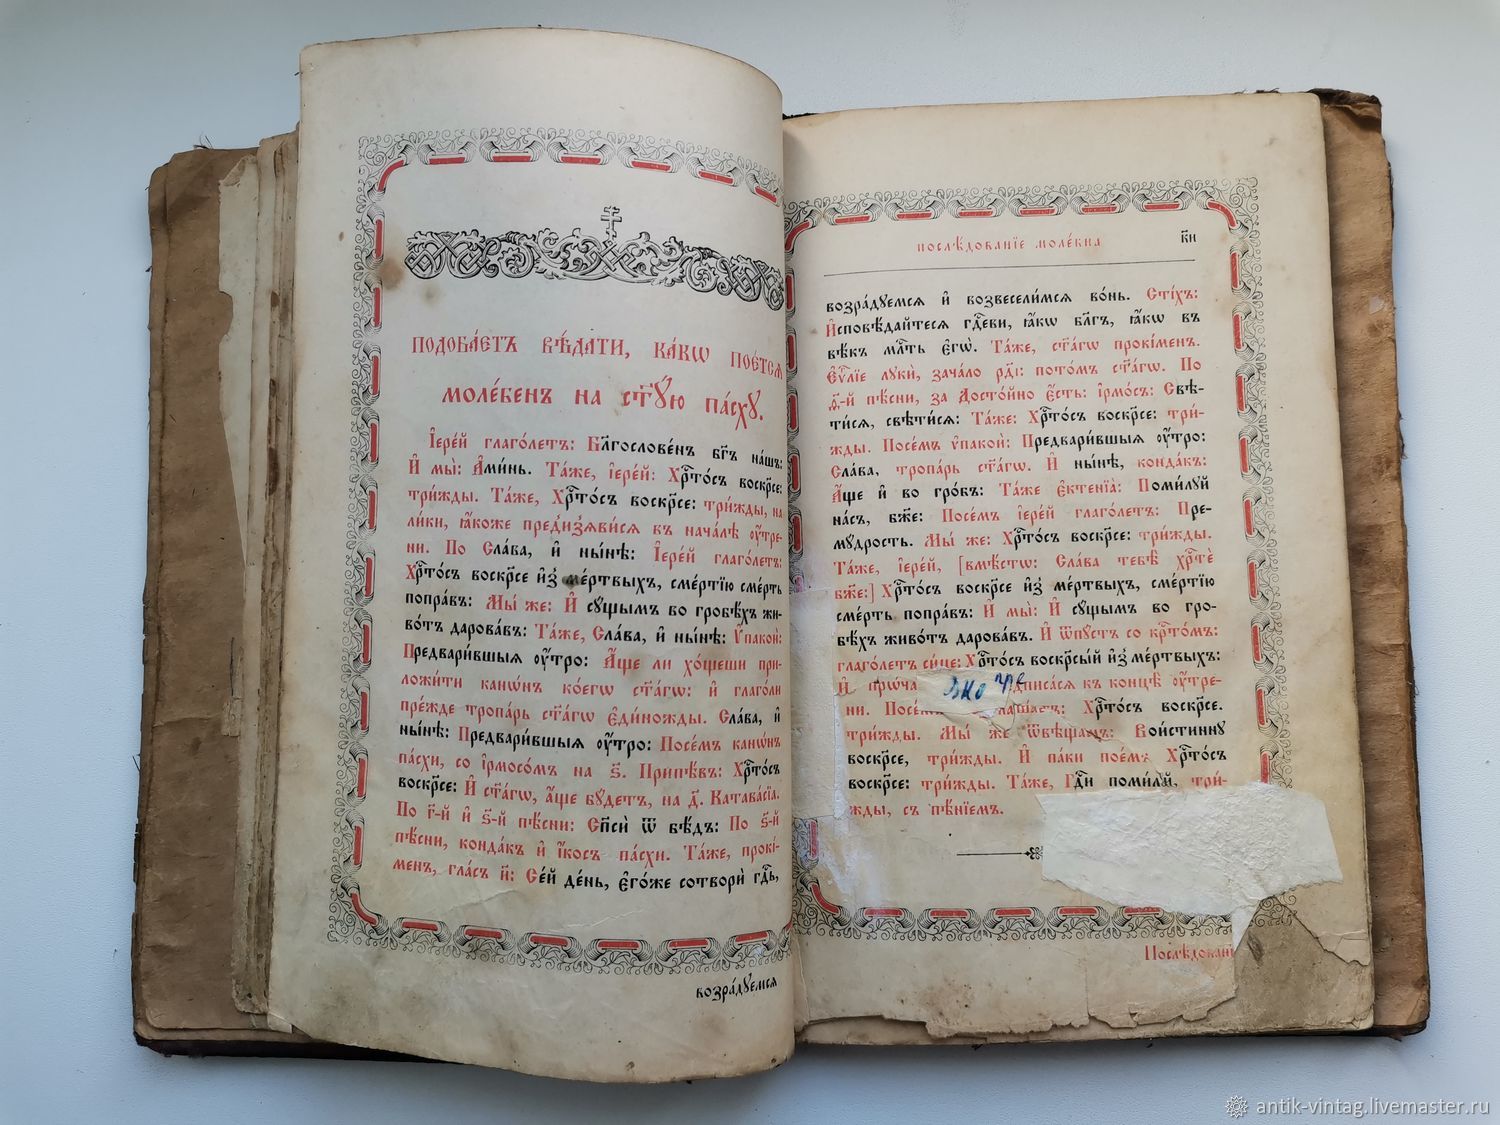 ПОДОБА́ЕТЪ ВѢ́ДАТИ, КА́КѠ ПОЕ́ТСѦ
МОЛЕ́БЕНЪ НА СТ҃У́Ю ПА́СХУ.
І҆ере́й глаго́летъ: Бл҃гослове́нъ бг҃ъ на́шъ:
И҆ мы̀: А҆ми́нь. Та́же, і҆ере́й: Хрⷭ҇то́съ воскр҃се:
три́жды. Та́же, Хрⷭ҇то́съ воскр҃се: три́жды, на
ли́ки, ꙗ҆́коже пред̾изѧви́сѧ въ нача́лѣ ᲂу҆́тре-
ни. По Сла́ва, и҆ ны́нѣ: І҆ере́й глаго́летъ:
Хрⷭ҇то́съ воскр҃се и҆з̾ ме́ртвыхъ, сме́ртїю сме́рть
попра́въ: Мы́ же: И҆ су́щымъ во гробѣ́хъ жи-
во́тъ дарова́въ: Та́же, Сла́ва, и҆ ны́нѣ: Ѵ҆пакоѝ:
Предвари́вшыѧ ᲂу҆́тро: А҆́ще ли хо́щеши при-
ложи́ти канѡ́нъ ко́егѡ ст҃а́гѡ: и҆ глаго́ли
пре́жде тропа́рь ст҃а́гѡ є҆ди́ножды. Сла́ва, и҆
ны́нѣ: Предвари́вшыѧ ᲂу҆́тро: Посе́мъ канѡ́нъ
па́схи, со і҆рмосо́мъ на ѕ҃. Припѣ́въ: Хрⷭ҇то́съ
воскр҃се: И҆ ст҃а́гѡ, а҆́ще бу́детъ, на д҃. Катава́сїа.
По г҃-й и҆ ѕ҃-й пѣ́сни: Сп҃сѝ ѿ бѣ́дъ: По ѕ҃-й
пѣ́сни, конда́къ и҆ і҆́косъ па́схи. Та́же, прокі́-
менъ, гла́съ и҃: Се́й де́нь, є҆го́же сотворѝ гдⷭ҇ь,
возра́дуемсѧ
ПОСЛѢ́ДОВАНЇЕ МОЛЕ́БНА
к҃и
возра́дуемсѧ и҆ возвесели́мсѧ во́нь. Сті́хъ:
И҆сповѣ́дайтесѧ гдⷭ҇еви, ꙗ҆́кѡ бл҃гъ, ꙗ҆́кѡ въ
вѣ́къ млⷭ҇ть є҆гѡ̀. Та́же, ст҃а́гѡ прокі́менъ.
Є҆ѵⷢ҇лїе лукѝ, зача́ло рд҃і: пото́мъ ст҃а́гѡ. По
ѳ҃-й пѣ́сни, за Досто́йно є҆́сть: і҆рмо́съ: Свѣ-
ти́сѧ, свѣти́сѧ: Та́же: Хрⷭ҇то́съ воскр҃се: три́-
жды. Посе́мъ ѵ҆пакоѝ: Предвари́вшыѧ ᲂу҆́тро:
Сла́ва, тропа́рь ст҃а́гѡ. И҆ ны́нѣ, конда́къ:
А҆́ще и҆ во гро́бъ: Та́же є҆ктенїа̀: Поми́луй
на́съ, бж҃е: Посе́мъ і҆ере́й глаго́летъ: Пре-
му́дрость. Мы́ же: Хрⷭ҇то́съ воскр҃се: три́жды.
Та́же, і҆ере́й, [вмѣ́стѡ: Сла́ва тебѣ̀ хрⷭ҇тѐ
бж҃е:] Хрⷭ҇то́съ воскр҃се и҆з̾ ме́ртвыхъ, сме́ртїю
сме́рть попра́въ: И҆ мы̀: И҆ су́щымъ во гро-
бѣ́хъ живо́тъ дарова́въ. И҆ ѿпу́стъ со крⷭ҇то́мъ:
глаго́летъ си́це: Хрⷭ҇то́съ воскр҃сы́й и҆з̾ ме́ртвыхъ:
И҆ прѡ́чаѧ писасѧ къ концѣ̀ ᲂу҆́тре-
ни. Хрⷭ҇то́съ воскр҃се.
три́жды. Мы́ же ѿвѣща́емъ: Вои́стинну
воскр҃се, три́жды. И҆ па́ки пое́мъ Хрⷭ҇то́съ
воскр҃се: три́жды. Та́же, Гдⷭ҇и поми́луй, три́-
жды, съ пѣ́нїемъ.
Послѣ́довані
antik-vintag.livemaster.ru